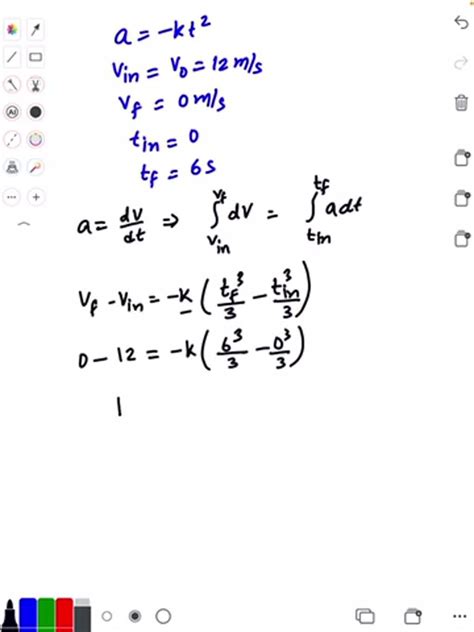 a = -kt²
Vin = V₀ = 12 m/s
Vf = 0 m/s
tin = 0
tf = 6 s
a = dv/dt ⇒ ∫_{Vin}^{Vf} dv = ∫_{tin}^{tf} a dt
Vf - Vin = -k ( tf³/3 - tin³/3 )
0 - 12 = -k ( 6³/3 - 0³/3 )